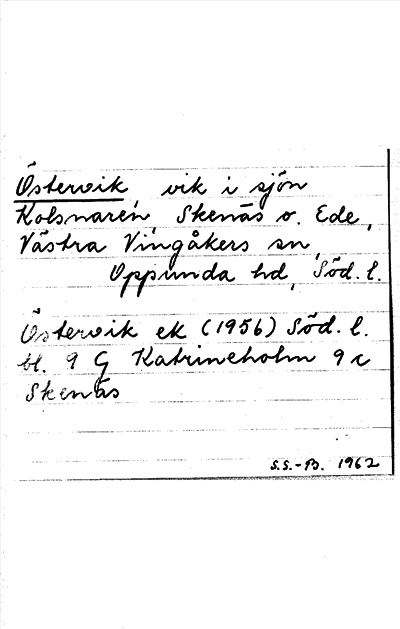 Östervik vik i sjön
Kolsnaren, Skenäs o. Ede,
Västra Vingåkers sn,
Oppunda hd, Söd. l.
Östervik ek (1956) Söd. l.
bl. 9 G Katrineholm 9 c
Skenäs
S.S.-B. 1962